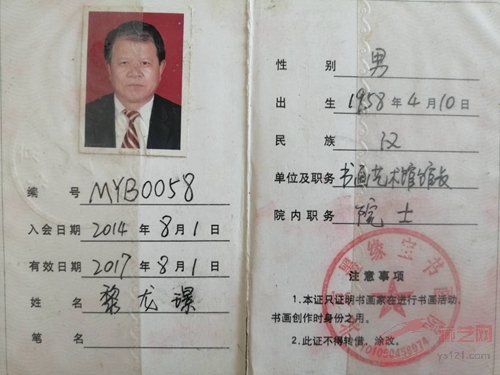 编 号 MYB0058
入会日期 2014 年 8 月 1 日
有效日期 2017 年 8 月 1 日
姓 名 黎龙
笔 名
性 别 男
出 生 1958 年 4 月 10 日
民 族 汉
单位及职务 书画艺术馆馆长
院内职务 院士
注意事项
1.本证只证明书画家在进行书画活动,
书画创作时身份之用。
2.此证不得转借，涂改。
缘宝书
ya121.com